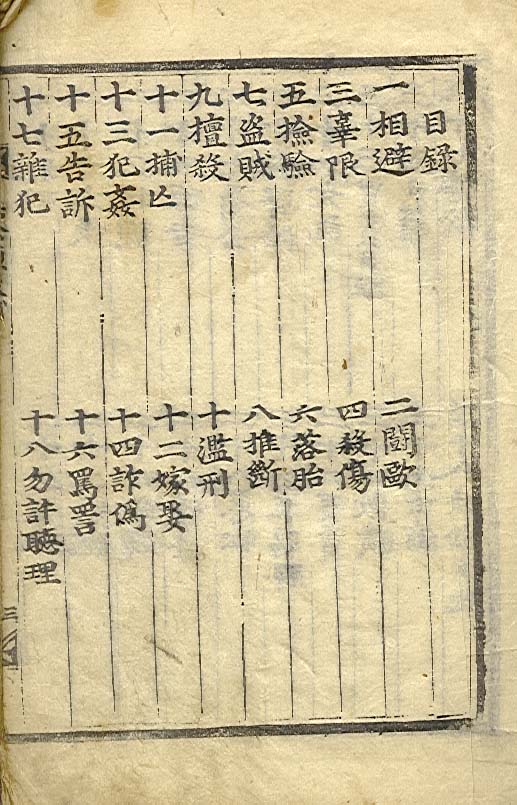 目録
一相避　二鬪歐
三辜限　四殺傷
五撿驗　六落胎
七盜賊　八推斷
九擅殺　十濫刑
十一捕亾　十二嫁娶
十三犯姦　十四詐偽
十五告訴　十六罵詈
十七雜犯　十八勿許聽理
三